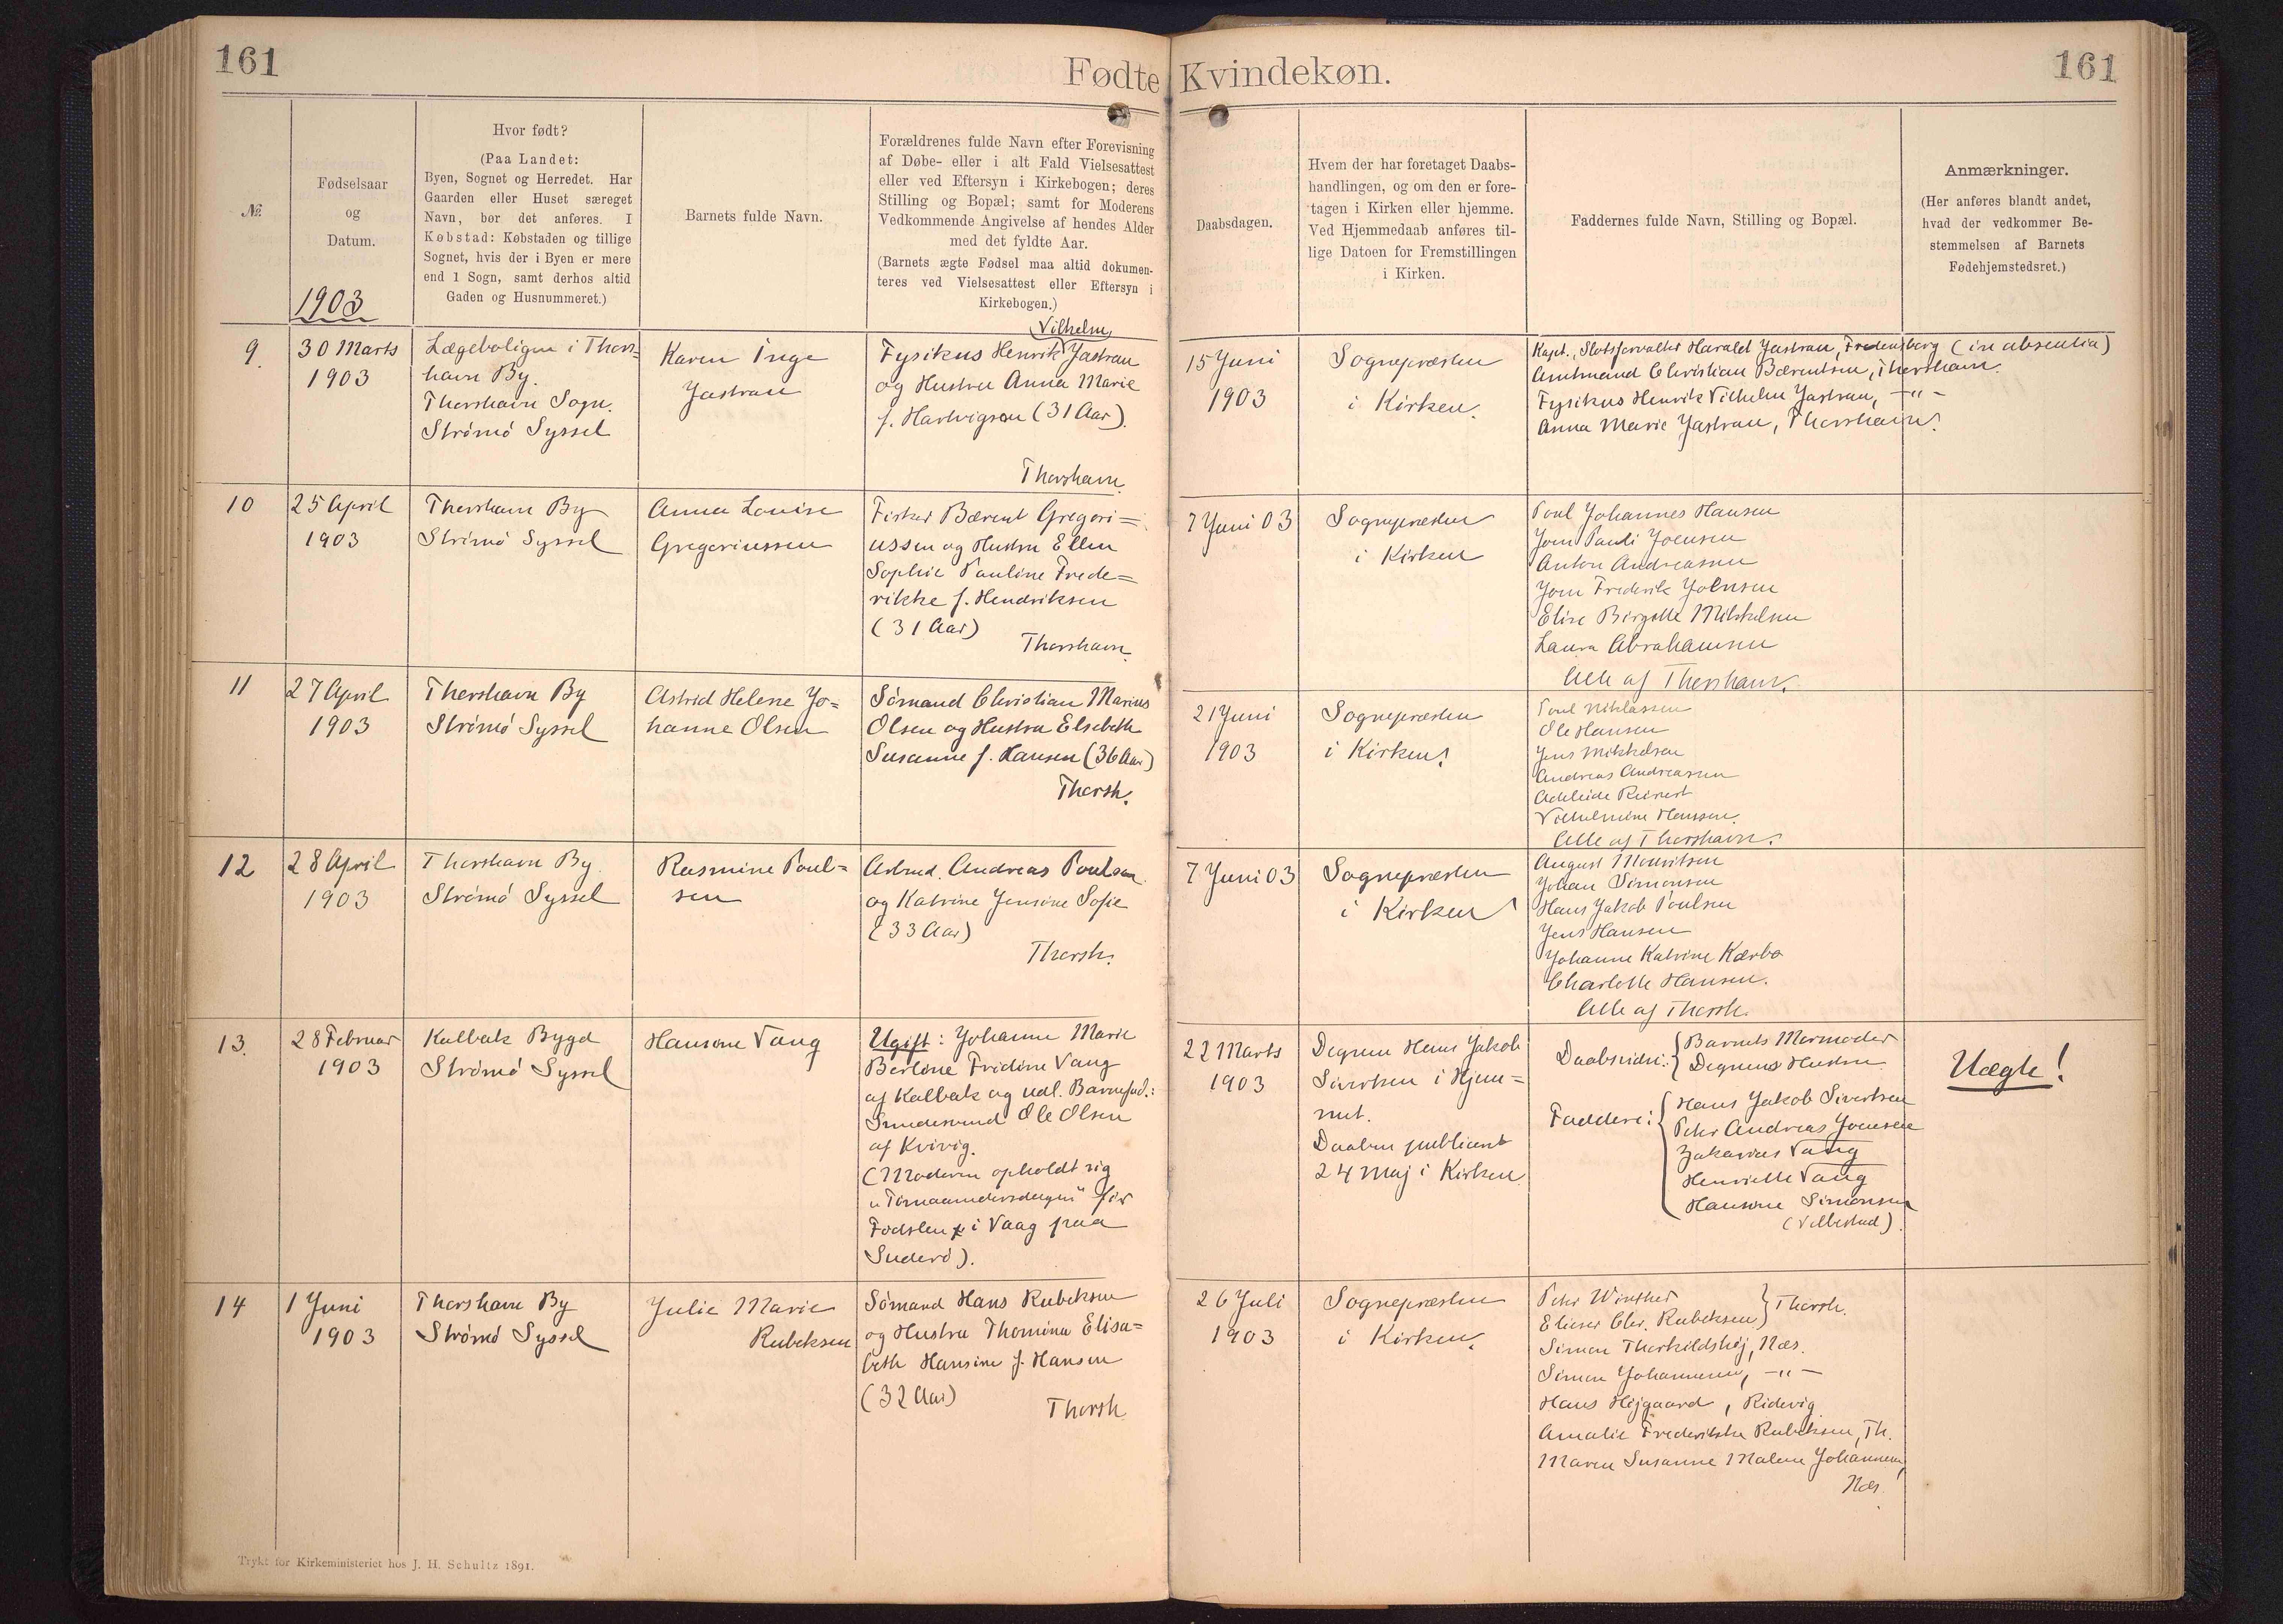 161
Fødte Kvindekøn.
161
№
Fødselsaar
og
Datum.
1903
Hvor født?
(Paa Landet:
Byen, Sognet og Herredet. Har
Gaarden eller Huset særeget
Navn, bør det anføres. I
Købstad: Købstaden og tillige
Sognet, hvis der i Byen er mere
end 1 Sogn, samt derhos altid
Gaden og Husnummeret.)
Barnets fulde Navn.
Forældrenes fulde Navn efter Forevisning
af Døbe- eller i alt Fald Vielsesattest
eller ved Eftersyn i Kirkebogen; deres
Stilling og Bopæl; samt for Moderens
Vedkommende Angivelse af hendes Alder
med det fyldte Aar.
(Barnets ægte Fødsel maa altid dokumen-
teres ved Vielsesattest eller Eftersyn i
Kirkebogen.)
Daabsdagen.
Hvem der har foretaget Daabs-
handlingen, og om den er fore-
tagen i Kirken eller hjemme.
Ved Hjemmedaab anføres til-
lige Datoen for Fremstillingen
i Kirken.
Faddernes fulde Navn, Stilling og Bopæl.
Anmærkninger.
(Her anføres blandt andet,
hvad der vedkommer Be-
stemmelsen af Barnets
Fødehjemstedsret.)
9.
30 Marts
1903
Lægeboligen i Thors=
havn By.
Thorshavn Sogn.
Strømø Syssel
Karen Inge
Jastrau
Vilhelm
Fysikus Henrik Jastrau
og Hustru Anna Marie
f. Hartvigson (31 Aar).
Thorshavn.
15 Juni
1903
Sognepræsten
i Kirken.
Kapt., Slotsforvalter Harald Jastrau, Fredensborg (in absentia)
Amtmand Christian Bærentsen, Thorshavn.
Fysikus Henrik Vilhelm Jastrau, -"-
Anna Marie Jastrau, Thorshavn.
10
25 April
1903
Thorshavn By
Strømø Syssel
Anna Louise
Gregoriussen
Fisker Bærent Gregori=
ussen og Hustru Ellen
Sophie Pauline Frede=
rikke f. Hendriksen
(31 Aar)
Thorshavn.
7 Juni 03
Sognepræsten
i Kirken
Poul Johannes Hansen
Joen Pauli Joensen
Anton Andreasen
Joen Frederik Joensen
Elise Birgitte Mikkelsen
Laura Abrahamsen
Alle af Thorshavn.
11
27 April
1903
Thorshavn By
Strømø Syssel
Astrid Helene Jo=
hanne Olsen
Sømand Christian Marius
Olsen og Hustru Elsebeth
Susanne f. Hansen (36 Aar)
Thorsh.
21 Juni
1903
Sognepræsten
i Kirken.
Poul Niklassen
Ole Hansen
Jens Mikkelsen
Andreas Andreassen
Adeleide Reinert
Vilhelmine Hanssen.
Alle af Thorshavn.
12
28 April
1903
Thorshavn By
Strømø Syssel
Rasmine Poul=
sen
Arbmd. Andreas Poulsen
og Katrine Jensine Sofie
(33 Aar)
Thorsh.
7 Juni 03
Sognepræsten
i Kirken
August Mouritsen
Johan Simonsen
Hans Jakob Poulsen
Jens Hansen
Johanne Katrine Kærbo
Charlotte Hansen.
Alle af Thorsh.
13.
28 Februar
1903
Kalbak Bygd
Strømø Syssel
Hansine Vang
Ugift: Johanne Marie
Bertine Fridine Vang
af Kalbak og udl. Barnefad.:
Smedesvend Ole Olsen
af Kvivig.
(Moderen opholdt sig
"Timaanedersdagen" før
Fødslen i Vaag paa
Suderø).
22 Marts
1903
Degnen Hans Jakob
Sivertsen i Hjem=
met.
Daaben publiceret
24 Maj i Kirken
Daabsvidn.: Barnets Mormoder
Degnens Hustru
Faddere: Hans Jakob Sivertsen
Peter Andreas Joensen
Zakarias Vang
Henriette Vang
Hansine Simonsen
(Velbestad).
Uægte!
14
1 Juni
1903
Thorshavn By
Strømø Syssel
Julie Marie
Rubeksen
Sømand Hans Rubeksen
og Hustru Thomina Elisa=
beth Hansine f. Hansen
(32 Aar)
Thorsh
26 Juli
1903
Sognepræsten
i Kirken.
Peter Winther
Elieser Chr. Rubeksen Thorsh.
Simon Thorkildshøj, Næs.
Simon Johannesen, -"-
Hans Højgaard, Ridevig
Amalie Frederikke Rubeksen, Th.
Maren Susanne Malene Johannesen,
Næs.
Trykt for Kirkeministeriet hos J. H. Schultz 1891.